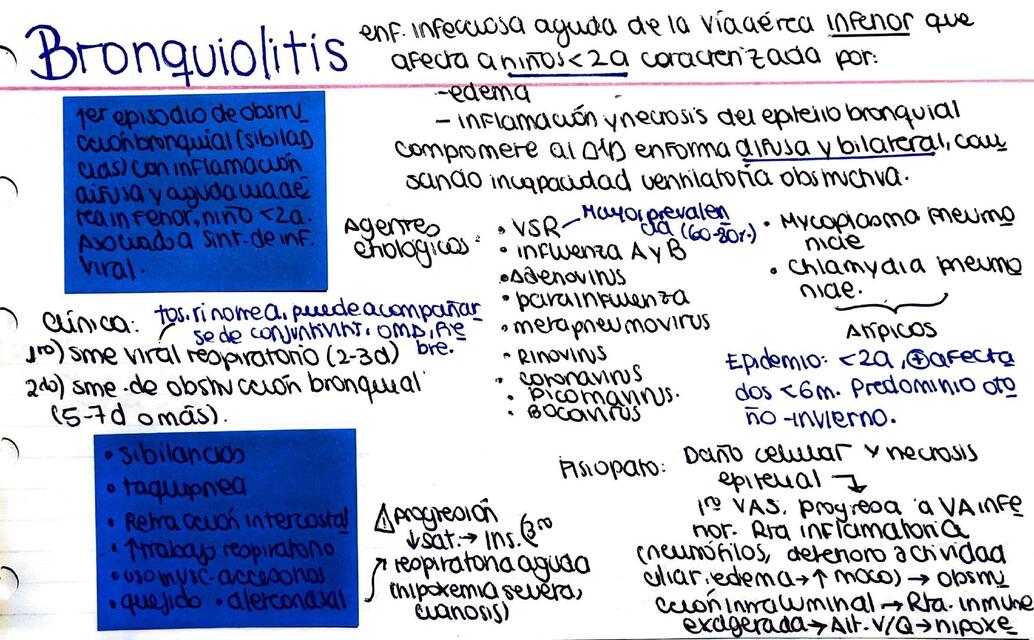 Bronquiolitis
enf. infecciosa aguda de la vía aérea inferior que
afecta a niños <2a caracterizada por:
-edema
- inflamación y necrosis del epitelio bronquial
compromete al en forma difusa y bilateral, cau
sando incapacidad ventilatoria obstructiva.
1er episodio de obstru
cción bronquial (sibilan
cias) con inflamación
difusa y aguda vía aé
rea inferior, niño <2a.
Asociado a sint. de inf.
viral.
Agentes
etiológicos:
• VSR
Mayor prevalen
cia (60-80%)
• influenza A y B
• Adenovirus
• parainfluenza
• metapneumovirus
• Rinovirus
• coronavirus
• Picornavirus.
• Bocavirus
• Mycoplasma pneumo
niae
• Chlamydia pneumo
niae.
Atípicos
Epidemio: <2a, ⊕ afecta
dos <6m. Predominio oto
ño-invierno.
Clínica:
tos, rinorrea, puede acompañar
se de conjuntivit, OMA, fie
bre.
1ro) sme viral respiratorio (2-3d)
2do) sme. de obstrucción bronquial
(5-7d o más).
• sibilancias
• taquipnea
• Retracción intercostal
• ↑trabajo respiratorio
• uso musc. accesorios
• quejido • aleteo nasal
⚠ progresión
↓sat. → Ins.
respiratoria aguda
(hipoxemia severa,
cianosis)
Fisiopato: Daño celular y necrosis
epitelial
1ro VAS. Progresa a VA infe
rior. Rta inflamatoria
(neutrófilos, deterioro actividad
ciliar, edema → ↑ moco) → obstru
cción intraluminal → Rta. inmune
exagerada → Alt. V/Q → hipoxe